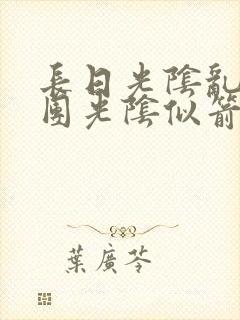 長日光陰亂
團光陰似箭
葉廣芩